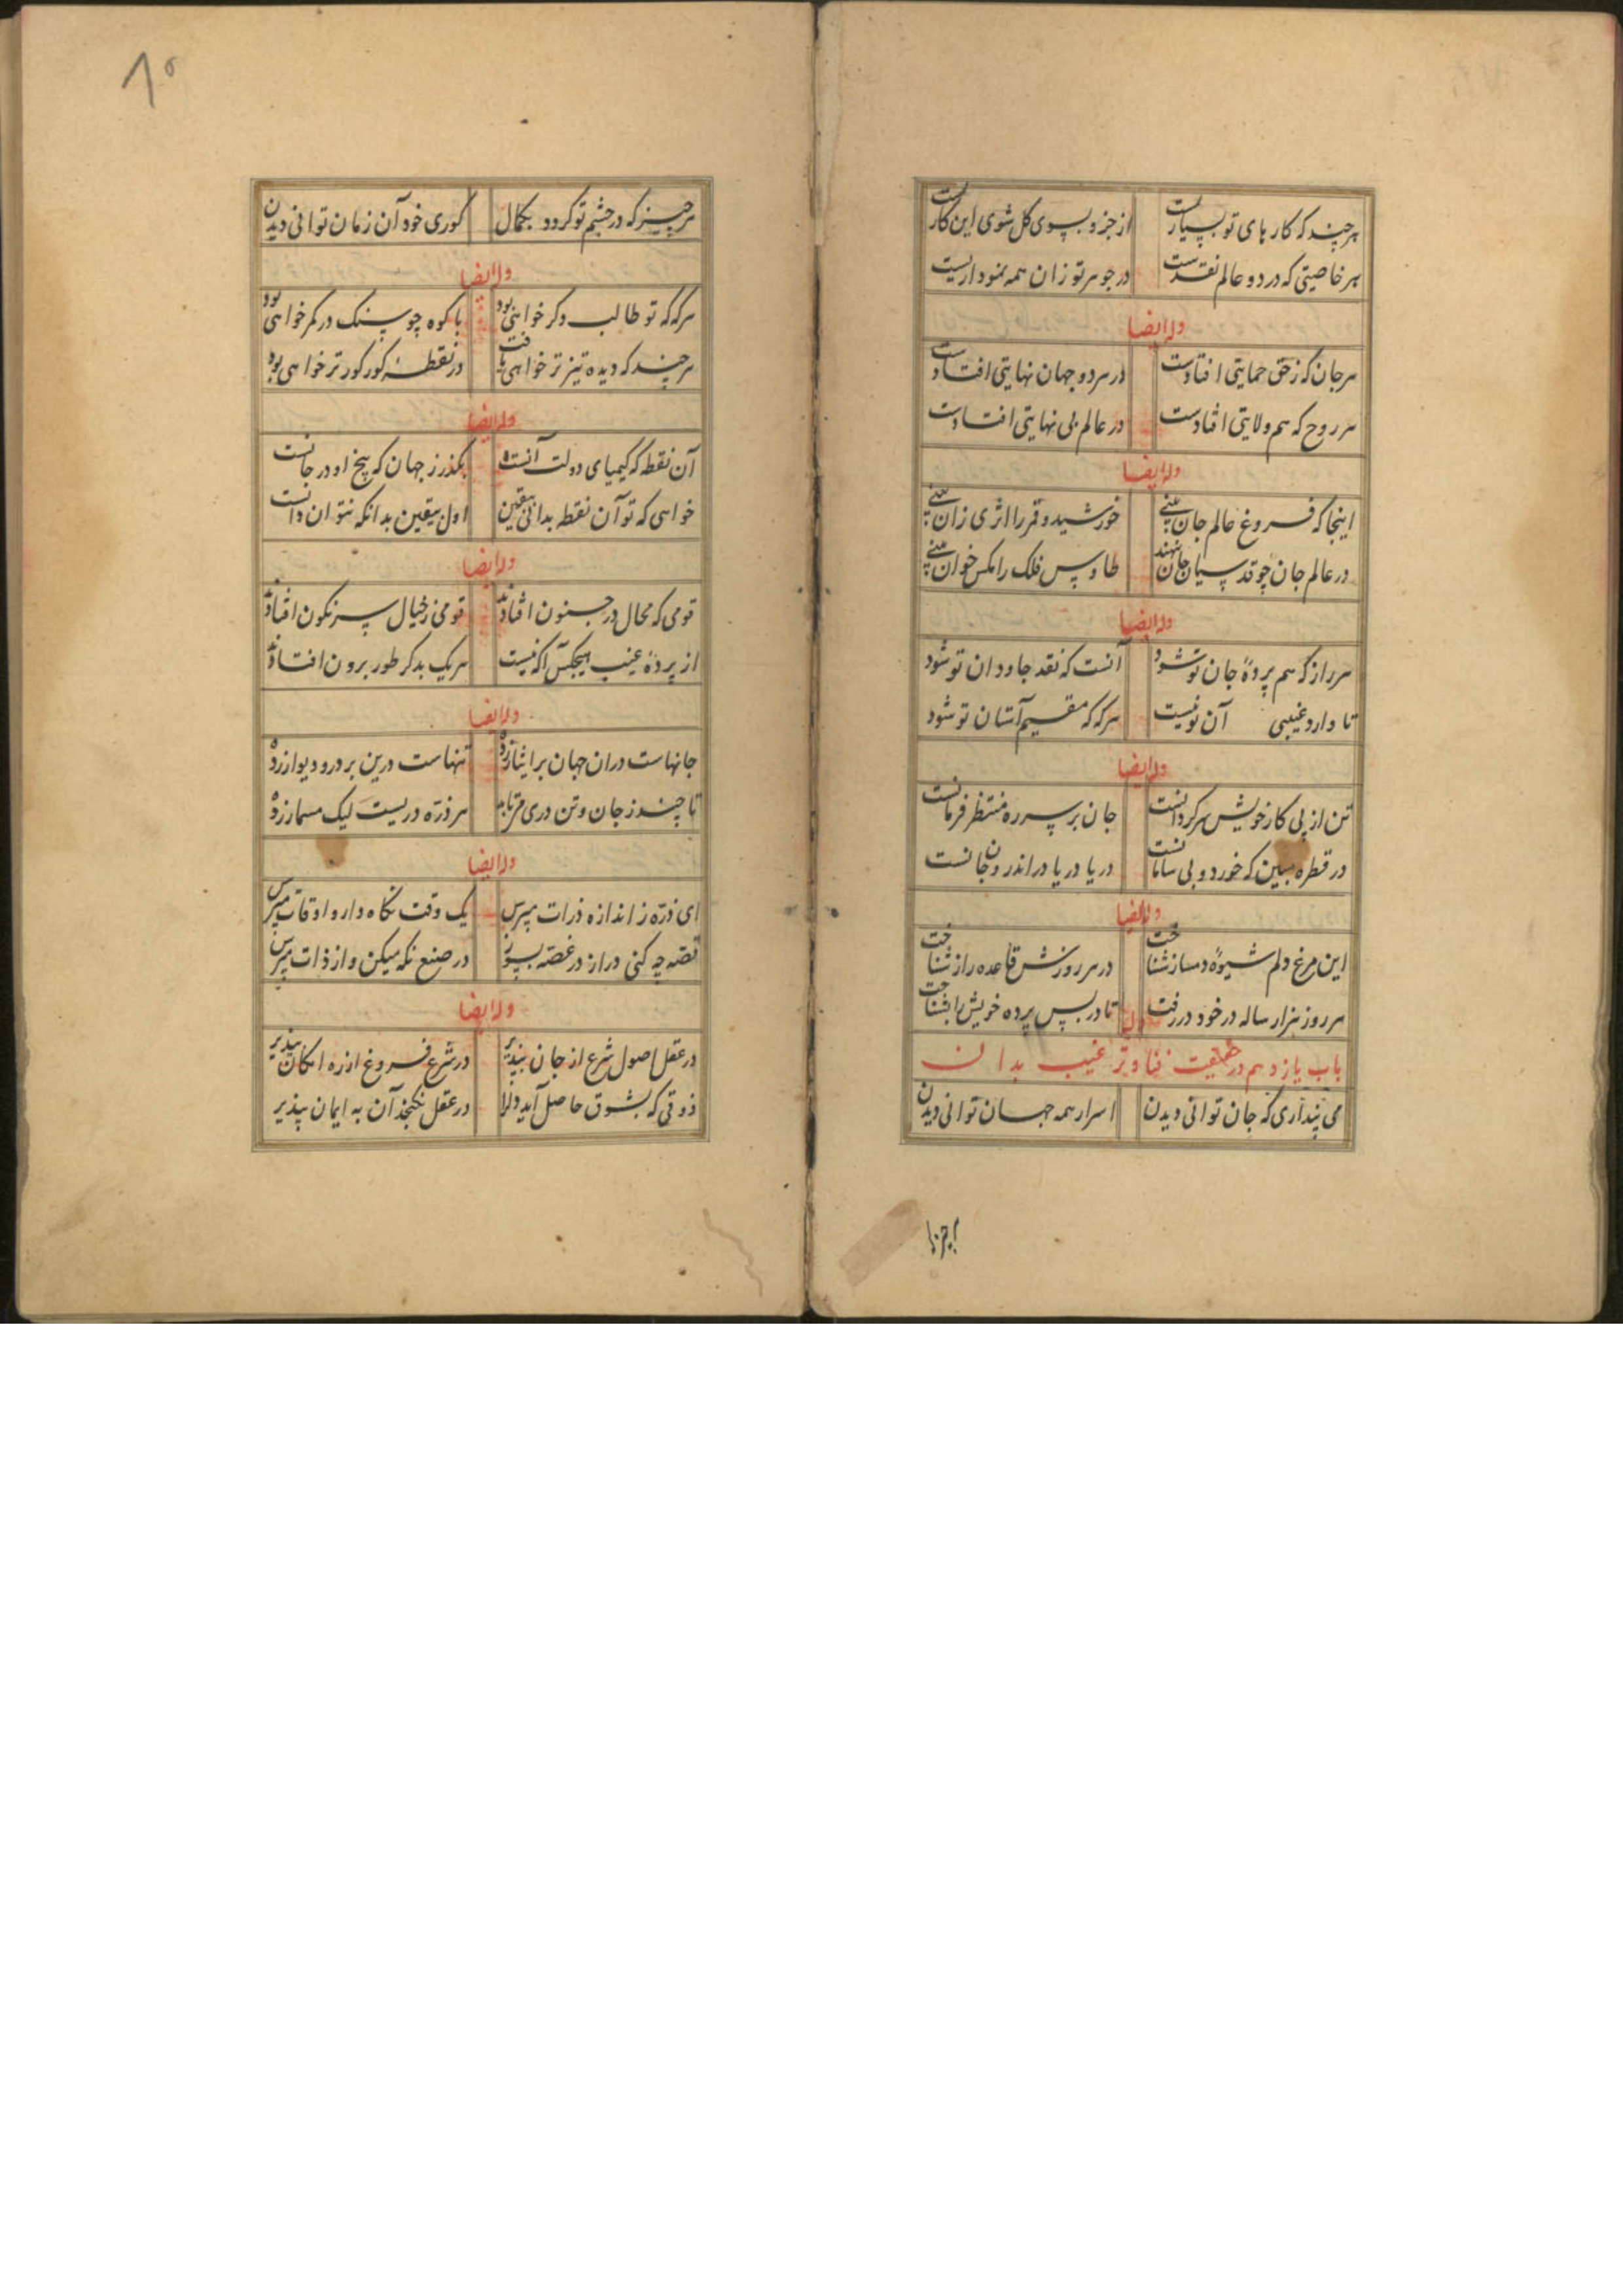 هرچند که کارهای تو بسیارست از جزو بسوی کل شوی این کارست
هر خاصیتی که در دو عالم نقدست در جوهر تو زان همه نموداریست
وله ایضا
هر جان که ز حق حمایتی افتادست در هر دو جهان نهایتی افتادست
هر روح که هم ولایتی افتادست در عالم بی نهایتی افتادست
وله ایضا
اینجا که فروغ عالم جان بینی خورشید و قمر را اثری زان بینی
در عالم جان چو قدسیان خوان بنهند طاوس فلک را مکس خوان بینی
وله ایضا
هر راز که هم پردهٔ جان تو شود آنست که نقد جاودان تو شود
تا وارد غیبی آن تو نیست هرکه که مقیم آشیان تو شود
وله ایضا
تن از پی کار خویش سرکردانست جان بر سر ره منتظر فرمانست
در قطره مبین که خورد و بی سامانست دریا دریا در اندرون جانست
وله ایضا
این مرغ دلم شیوهٔ دمساز شناخت در هر روزش قاعده راز شناخت
هر روز هزار ساله در خود در رفت تا در پس پرده خویش را بشناخت
باب یازدهم در حقیقت فنا و ترغیب بدان
می پنداری که جان توانی دیدن اسرار همه جهان توانی دیدن
هرچیز
هرچیز که در چشم تو کردد بکمال کوری خود آن زمان توانی دیدن
وله ایضا
هرکه که تو طالب دکر خواهی بود با کوه چو سنک در کمر خواهی بود
هرچند که دیده تیزتر خواهی یافت در نقطهٔ کور کورتر خواهی بود
وله ایضا
آن نقطه که کیمیای دولت آنست بکذر ز جهان که بیخ او در جانست
خواهی که تو آن نقطه بدانی بیقین اول بیقین بدانکه نتوان دانست
وله ایضا
قومی که محال در جنون افتادند قومی ز خیال سرنکون افتادند
از پردهٔ غیب هیچکس آکه نیست هریک بدکر طور برون افتادند
وله ایضا
جانهاست دران جهان بر انبار زده تنهاست درین بر در و دیوار زده
تا چند ز جان و تن دری می هر ذره دریست لیک مسمار زده
وله ایضا
ای ذره ز اندازه ذرات مپرس یک وقت نکاه دار و اوقات مپرس
قصه چه کنی دراز در غصه بسوز در صنع نکه میکن و از ذات مپرس
وله ایضا
در عقل اصول شرع از جان بپذیر در شرع فروغ از ره امکان بپذیر
ذوقی که بشوق حاصل آید دل را در عقل نکنجد آن به ایمان بپذیر